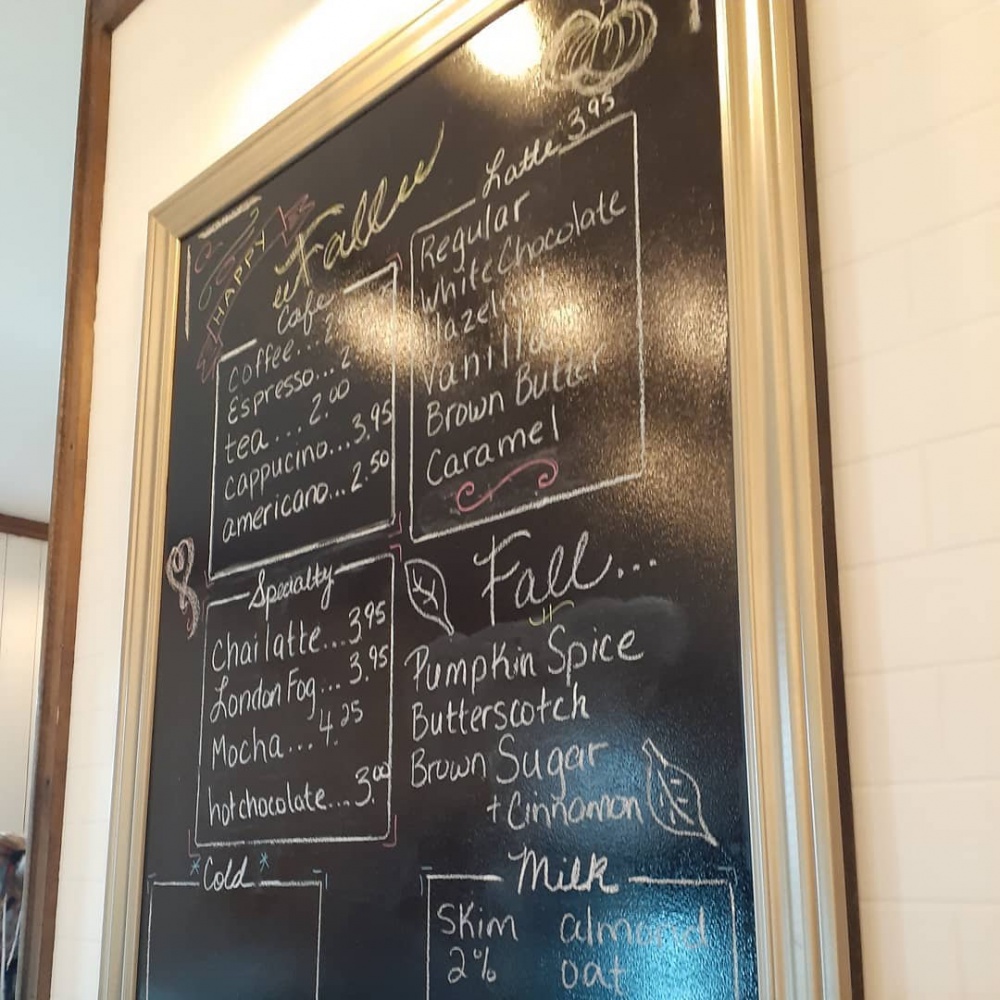 HAPPY
Fall
Cafe
coffee...
Espresso...2
tea...2.00
cappucino...3.95
americano...2.50
Latte 3.95
Regular
White Chocolate
Hazelnut
Vanilla
Brown Butter
Caramel
Specialty
Chai latte...3.95
London Fog...3.95
Mocha...4.25
hot chocolate...3.00
Fall...
Pumpkin Spice
Butterscotch
Brown Sugar
+ Cinnamon
Cold
Milk
Skim almond
2% oat